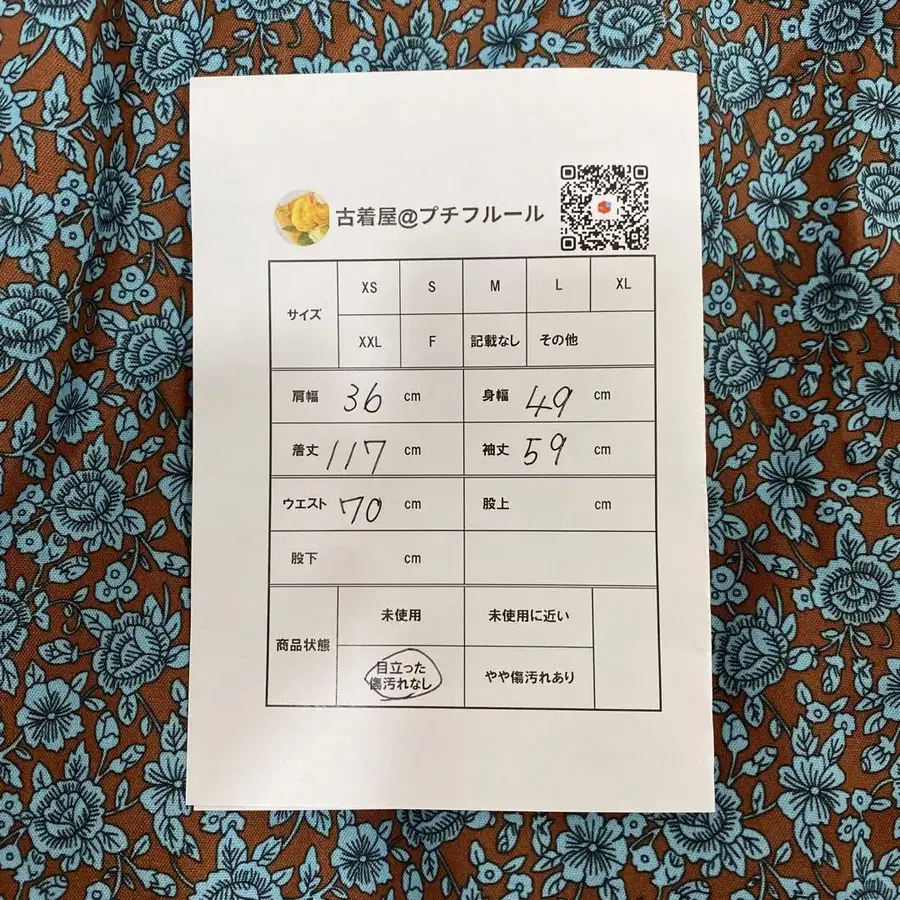 古着屋@プチフルール
サイズ XS S M L XL
XXL F 記載なし その他
肩幅 36 cm 身幅 49 cm
着丈 117 cm 袖丈 59 cm
ウエスト 70 cm 股上 cm
股下 cm
商品状態 未使用 未使用に近い
目立った
傷汚れなし やや傷汚れあり